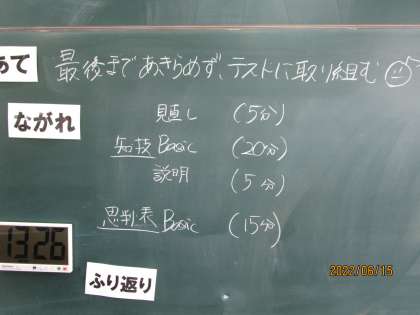 めあて 最後まであきらめず、テストに取り組む
ながれ
見直し (5分)
知技 Basic (20分)
説明 (5分)
思判表 Basic (15分)
13 26
ふり返り
2022/06/15